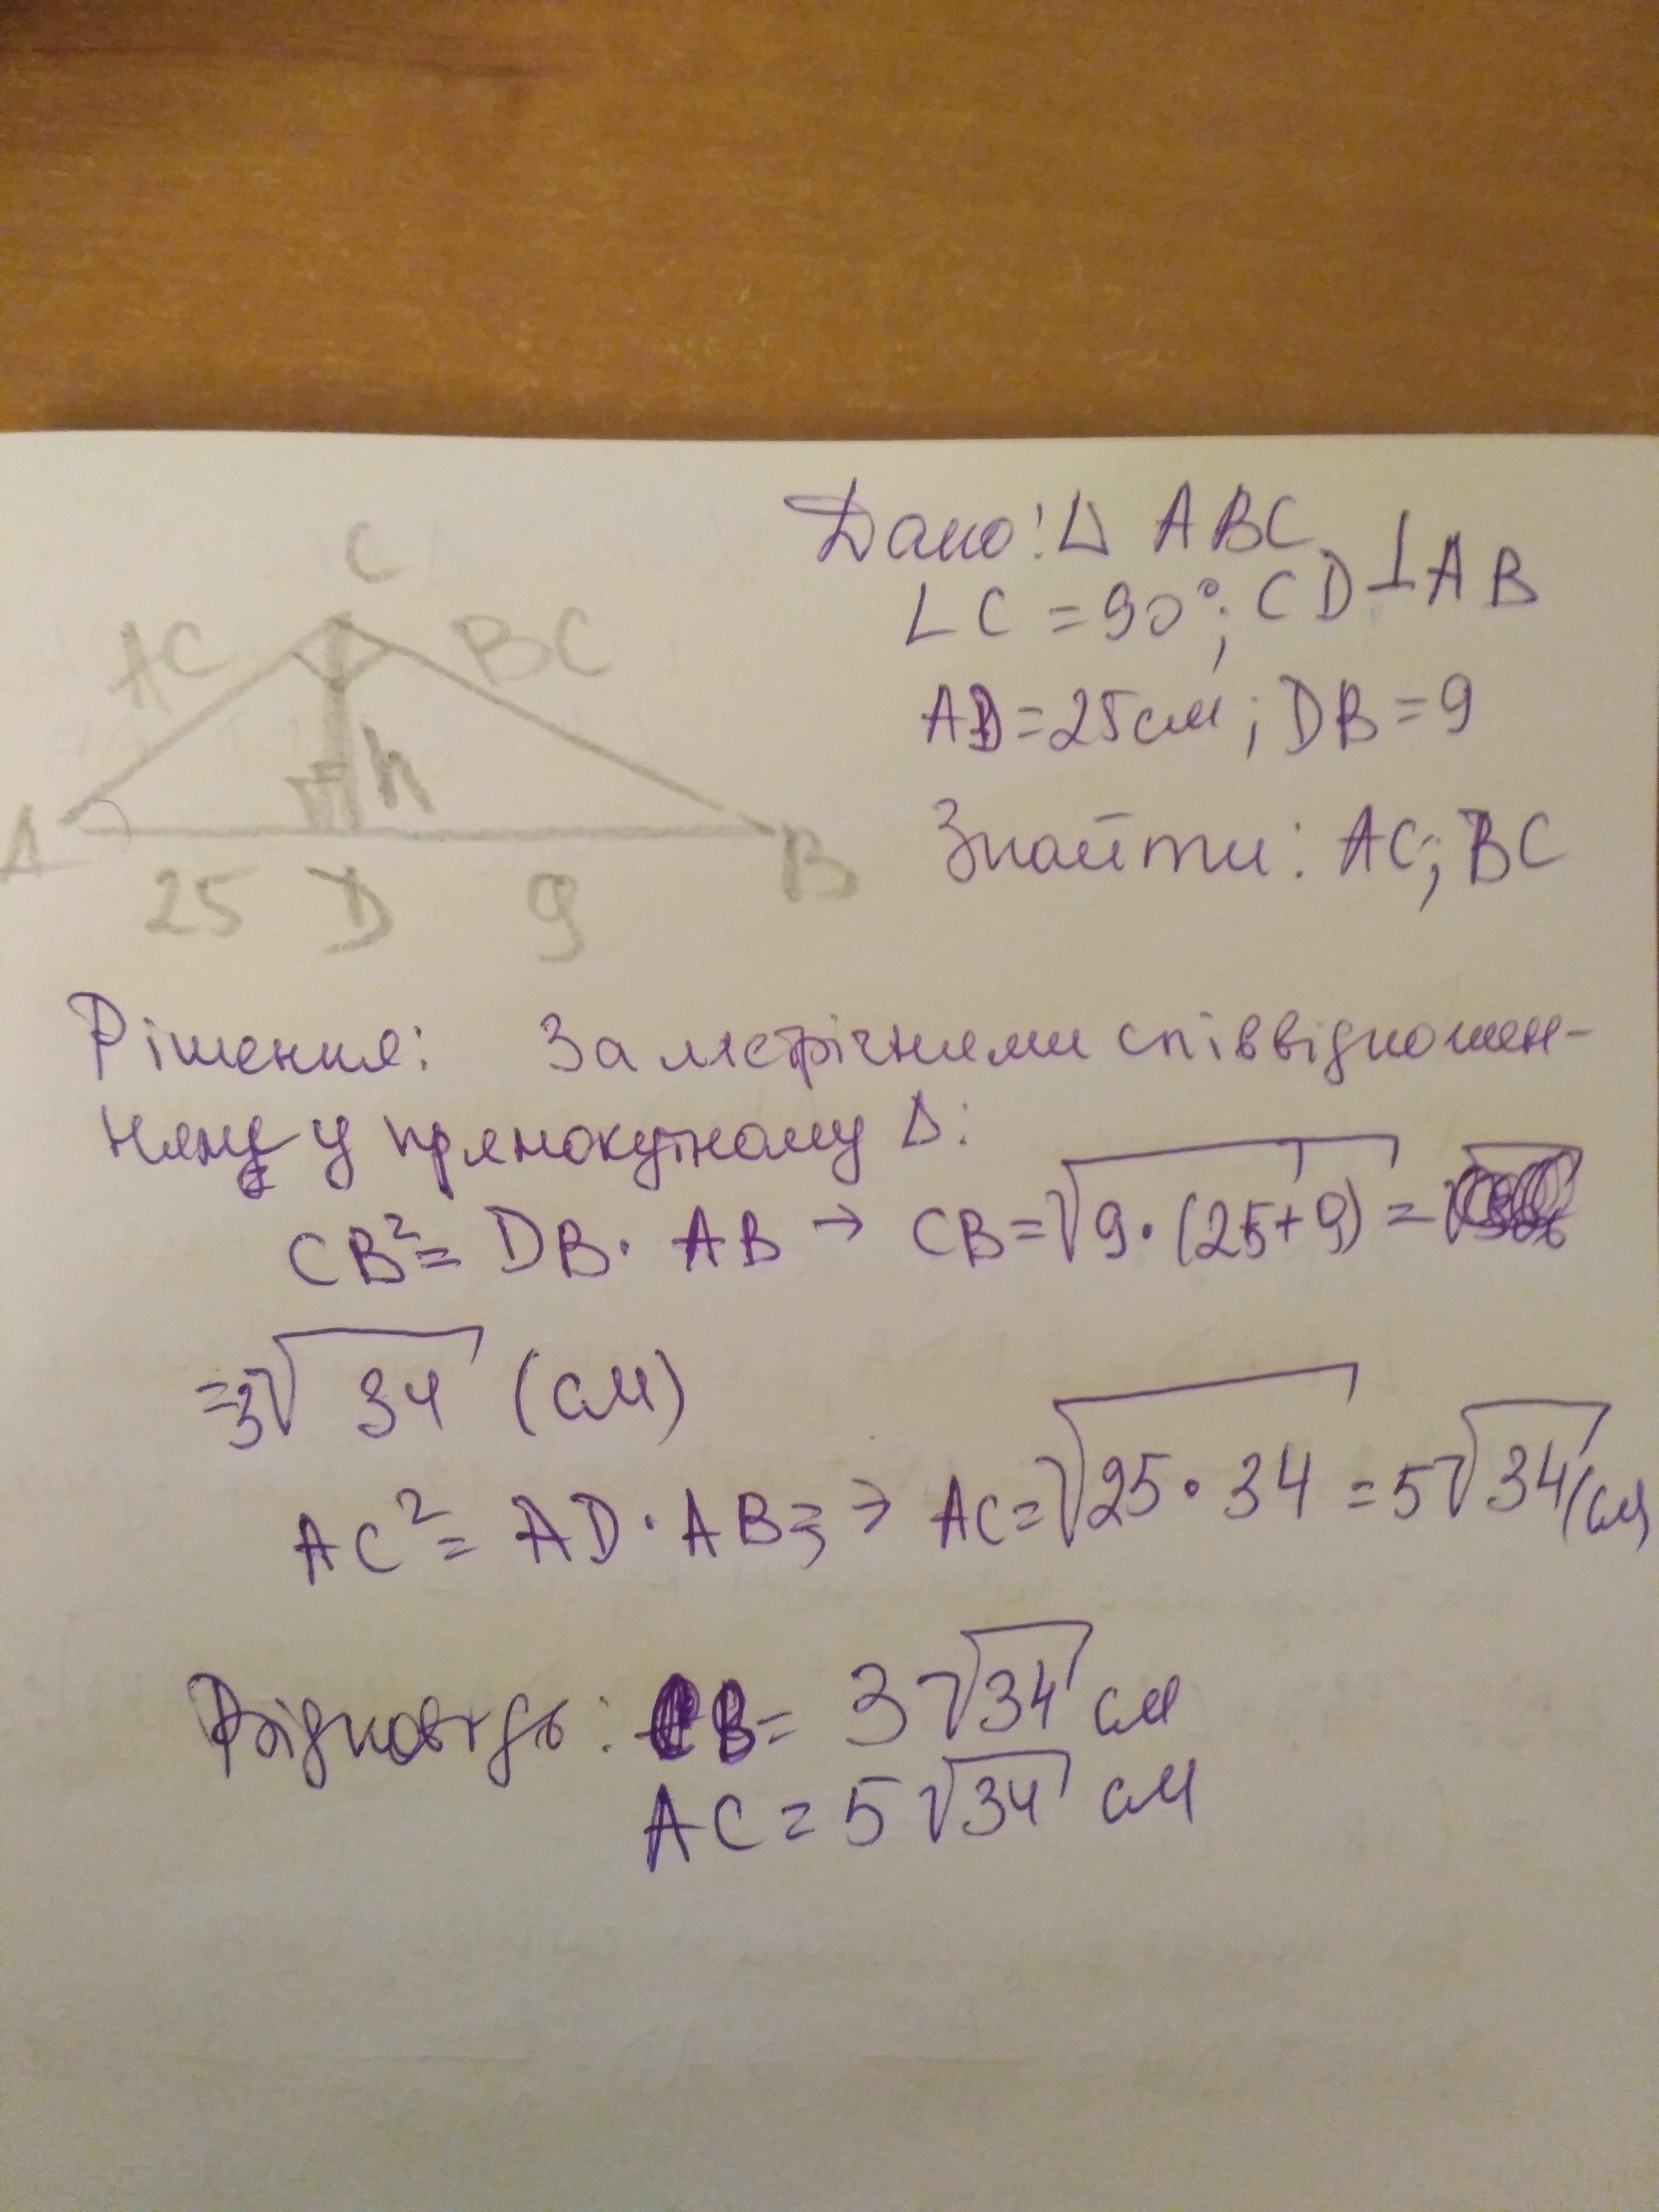 C
AC
BC
h
A
B
25 D 9
Дано: Δ ABC
∠C = 90°; CD ⊥ AB
AD = 25см; DB = 9
Знайти: AC; BC
Рішення: За метрічними співвідношен-
нями у прямокутному Δ:
CB² = DB · AB → CB = √9·(25+9) =
= 3√34 (см)
AC² = AD · AB => AC = √25·34 = 5√34 (см)
Відповідь: CB = 3√34 см
AC = 5√34 см